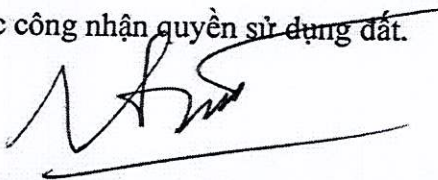 c công nhận quyền sử dụng đất.